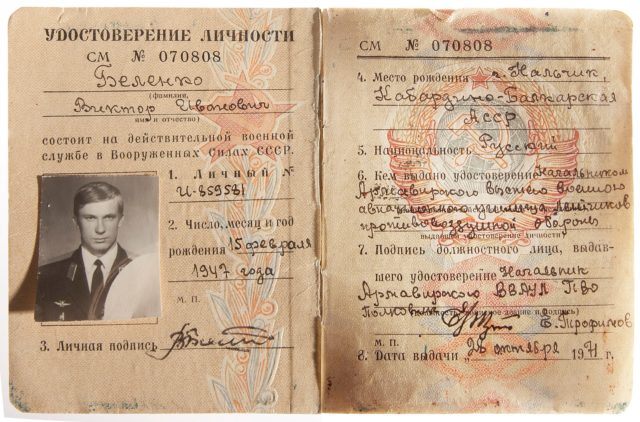 УДОСТОВЕРЕНИЕ ЛИЧНОСТИ
СМ № 070808
Беленко
(фамилия,
Виктор Иванович
имя и отчество)
состоит на действительной военной
службе в Вооруженных Силах СССР.
1. Личный №
И-859581
2. Число, месяц и год
рождения 15 февраля
1947 года
М. П.
3. Личная подпись
СМ № 070808
4. Место рождения г. Нальчик,
Кабардино-Балкарская
АССР
5. Национальность Русский
6. Кем выдано удостоверение Начальником
Армавирского высшего военного
авиационного училища лётчиков
противовоздушной обороны
выдавшего удостоверение личности)
7. Подпись должностного лица, выдав-
шего удостоверение Начальник
Армавирского ВВАУЛ ПВО
полковник Е. Трофимов
воинское звание и подпись)
М. П.
8. Дата выдачи „26 октября 1971 г.